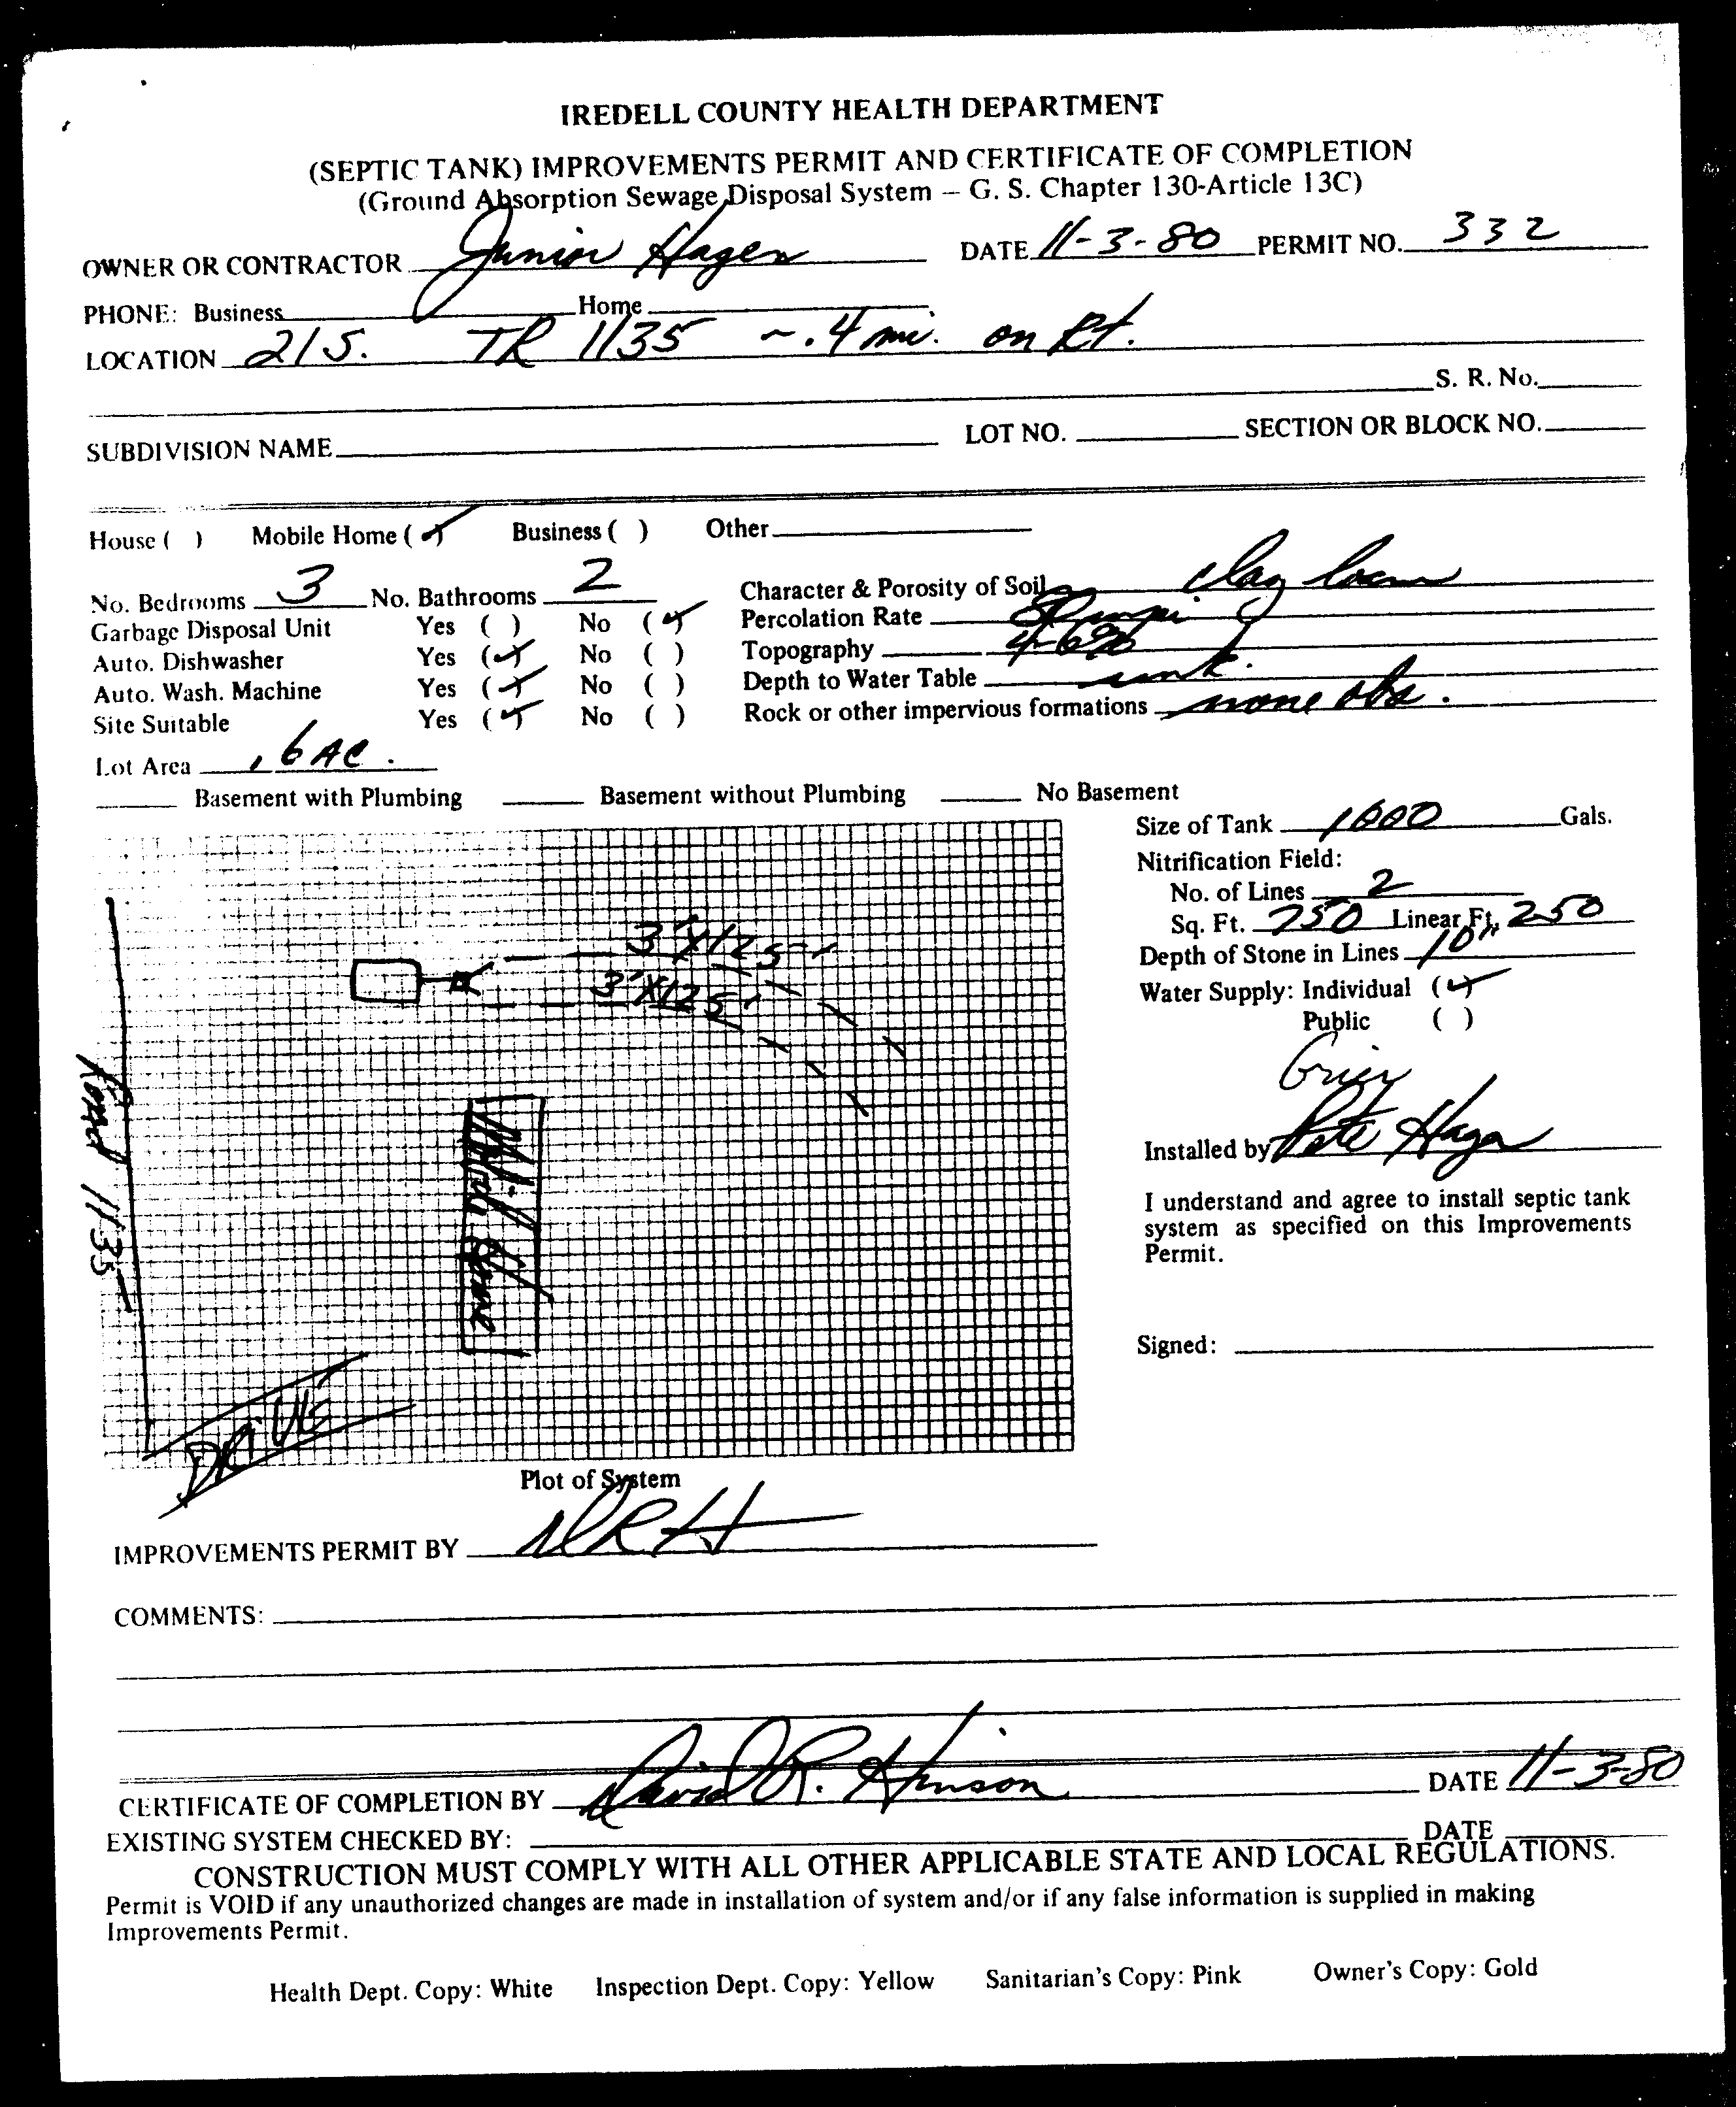 IREDELL COUNTY HEALTH DEPARTMENT
(SEPTIC TANK) IMPROVEMENTS PERMIT AND CERTIFICATE OF COMPLETION
(Ground Absorption Sewage Disposal System – G. S. Chapter 130-Article 13C)
OWNER OR CONTRACTOR Junior Hager DATE 11-3-80 PERMIT NO. 332
PHONE: Business Home
LOCATION 21 S. TR 1135 ~ .4 mi. on Rt.
S. R. No.
SUBDIVISION NAME LOT NO. SECTION OR BLOCK NO.
House ( ) Mobile Home (✓) Business ( ) Other
No. Bedrooms 3 No. Bathrooms 2 Character & Porosity of Soil clay loam
Garbage Disposal Unit Yes ( ) No (✓) Percolation Rate
Auto. Dishwasher Yes (✓) No ( ) Topography 4-6%
Auto. Wash. Machine Yes (✓) No ( ) Depth to Water Table unk.
Site Suitable Yes (✓) No ( ) Rock or other impervious formations none obs.
Lot Area .6 AC.
Basement with Plumbing Basement without Plumbing No Basement
Size of Tank 1000 Gals.
Nitrification Field:
No. of Lines 2
Sq. Ft. 750 Linear Ft. 250
Depth of Stone in Lines 10"
Water Supply: Individual (✓)
Public ( )
3'X125'
3'X125'
Road 1135
Mobile Home
DRIVE
Installed by Pete Hager
I understand and agree to install septic tank
system as specified on this Improvements
Permit.
Signed:
Plot of System
IMPROVEMENTS PERMIT BY DRH
COMMENTS:
CERTIFICATE OF COMPLETION BY David R. Hinson DATE 11-3-80
EXISTING SYSTEM CHECKED BY: DATE
CONSTRUCTION MUST COMPLY WITH ALL OTHER APPLICABLE STATE AND LOCAL REGULATIONS.
Permit is VOID if any unauthorized changes are made in installation of system and/or if any false information is supplied in making
Improvements Permit.
Health Dept. Copy: White Inspection Dept. Copy: Yellow Sanitarian's Copy: Pink Owner's Copy: Gold